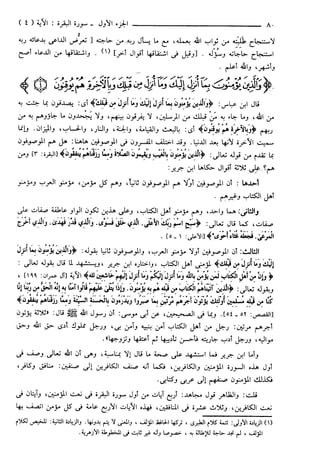 ٨٠ الجزء الأول - سورة البقرة : الآية ( ٤ )
لاستنجاح طلبته من ثواب الله بعمله، مع ما يسأل ربه من حاجته [ تعرض الداعى بدعائه ربه
استنجاح حاجاته وسؤله . [وقيل فى اشتقاقها أقوال أخر] (١) . واشتقاقها من الدعاء أصح
وأشهر، والله أعلم .
﴿ وَالَّذِينَ يُؤْمِنُونَ بِمَا أُنزِلَ إِلَيْكَ وَمَا أُنزِلَ مِن قَبْلِكَ وَبِالْآخِرَةِ هُمْ يُوقِنُونَ ﴾
قال ابن عباس: ﴿وَالَّذِينَ يُؤْمِنُونَ بِمَا أُنزِلَ إِلَيْكَ وَمَا أُنزِلَ مِن قَبْلِكَ﴾ أى: يصدقون بما جئت به
من الله، وما جاء به مَن قبلك من المرسلين، لا يفرقون بينهم، ولا يجحدون ما جاؤوهم به من
ربهم ﴿وَبِالْآخِرَةِ هُمْ يُوقِنُونَ﴾ أى: بالبعث والقيامة، والجنة، والنار، والحساب، والميزان. وإنما
سميت الآخرة لأنها بعد الدنيا. وقد اختلف المفسرون فى الموصوفين هاهنا: هل هم الموصوفون
بما تقدم من قوله تعالى: ﴿الَّذِينَ يُؤْمِنُونَ بِالْغَيْبِ وَيُقِيمُونَ الصَّلَاةَ وَمِمَّا رَزَقْنَاهُمْ يُنفِقُونَ﴾ [البقرة: ٣] ومن
هم؟ على ثلاثة أقوال حكاها ابن جرير:
أحدها : أن الموصوفين أولا هم الموصوفون ثانياً، وهم كل مؤمن، مؤمنو العرب ومؤمنو
أهل الكتاب وغيرهم .
والثانى: هما واحد، وهم مؤمنو أهل الكتاب، وعلى هذين تكون الواو عاطفة صفات على
صفات، كما قال تعالى: ﴿سَبِّحِ اسْمَ رَبِّكَ الْأَعْلَى. الَّذِي خَلَقَ فَسَوَّىٰ. وَالَّذِي قَدَّرَ فَهَدَىٰ. وَالَّذِي أَخْرَجَ
الْمَرْعَىٰ. فَجَعَلَهُ غُثَاءً أَحْوَىٰ﴾ [الأعلى: ١ - ٥] .
الثالث: أن الموصوفين أولا مؤمنو العرب، والموصوفون ثانيا بقوله: ﴿وَالَّذِينَ يُؤْمِنُونَ بِمَا أُنزِلَ
إِلَيْكَ وَمَا أُنزِلَ مِن قَبْلِكَ﴾ لمؤمنى أهل الكتاب. واختاره ابن جرير ويستشهد لما قال بقوله تعالى :
﴿وَإِنَّ مِنْ أَهْلِ الْكِتَابِ لَمَن يُؤْمِنُ بِاللَّهِ وَمَا أُنزِلَ إِلَيْكُمْ وَمَا أُنزِلَ إِلَيْهِمْ خَاشِعِينَ لِلَّهِ﴾ الآية [آل عمران: ١٩٩] ،
وبقوله تعالى: ﴿الَّذِينَ آتَيْنَاهُمُ الْكِتَابَ مِن قَبْلِهِ هُم بِهِ يُؤْمِنُونَ. وَإِذَا يُتْلَىٰ عَلَيْهِمْ قَالُوا آمَنَّا بِهِ إِنَّهُ الْحَقُّ مِن رَّبِّنَا إِنَّا
كُنَّا مِن قَبْلِهِ مُسْلِمِينَ أُولَٰئِكَ يُؤْتَوْنَ أَجْرَهُم مَّرَّتَيْنِ بِمَا صَبَرُوا وَيَدْرَءُونَ بِالْحَسَنَةِ السَّيِّئَةَ وَمِمَّا رَزَقْنَاهُمْ يُنفِقُونَ﴾
[القصص: ٥٢ - ٥٤]. وبما فى الصحيحين، عن أبى موسى: أن رسول الله ﷺ قال: «ثلاثة يؤتون
أجرهم مرتين: رجل من أهل الكتاب آمن بنبيه وآمن بى، ورجل مملوك أدى حق الله وحق
مواليه، ورجل أدب جاريته فأحسن تأديبها ثم أعتقها وتزوجها».
وأما ابن جرير فما استشهد على صحة ما قال إلا بمناسبة، وهى أن الله تعالى وصف فى
أول هذه السورة المؤمنين والكافرين، فكما أنه صنف الكافرين إلى صنفين: منافق وكافر،
فكذلك المؤمنون صنفهم إلى عربى وكتابى.
قلت: والظاهر قول مجاهد: أربع آيات من أول سورة البقرة فى نعت المؤمنين، وآيتان فى
نعت الكافرين، وثلاث عشرة فى المنافقين، فهذه الآيات الأربع عامة فى كل مؤمن اتصف بها
(١) الزيادة الأولى: تتمة كلام الطبرى ، تركها الحافظ المؤلف ، والمعنى لا يتم بدونها. والزيادة الثانية: تلخيص لكلام
المؤلف ، لم نجد حاجة للإطالة به ، خصوصا وأنه غير ثابت فى المخطوطة الأزهرية.